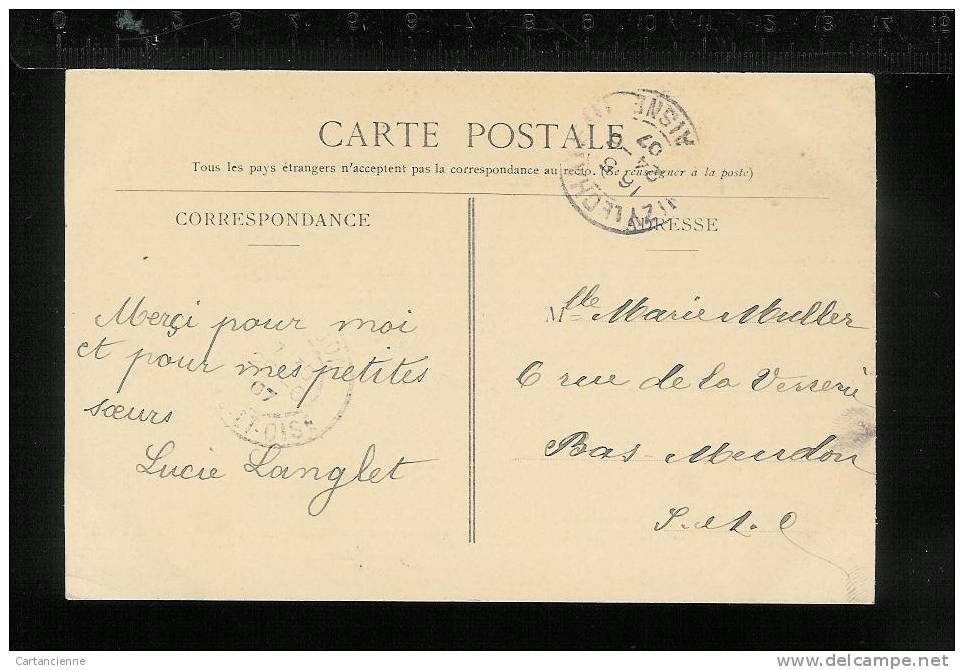 0 1 2 3 4 5 6 7 8 9 10 11 12
CARTE POSTALE
Tous les pays étrangers n'acceptent pas la correspondance au recto. (Se renseigner à la poste)
CORRESPONDANCE
ADRESSE
AISNE
16 5
24 - 9
07
Merçi pour moi
et pour mes petites
sœurs
Lucie Langlet
Mlle Marie Muller
6 rue de la Verrerie
Bas-Meudon
S.-et-O
07
Cartancienne
www.delcampe.net